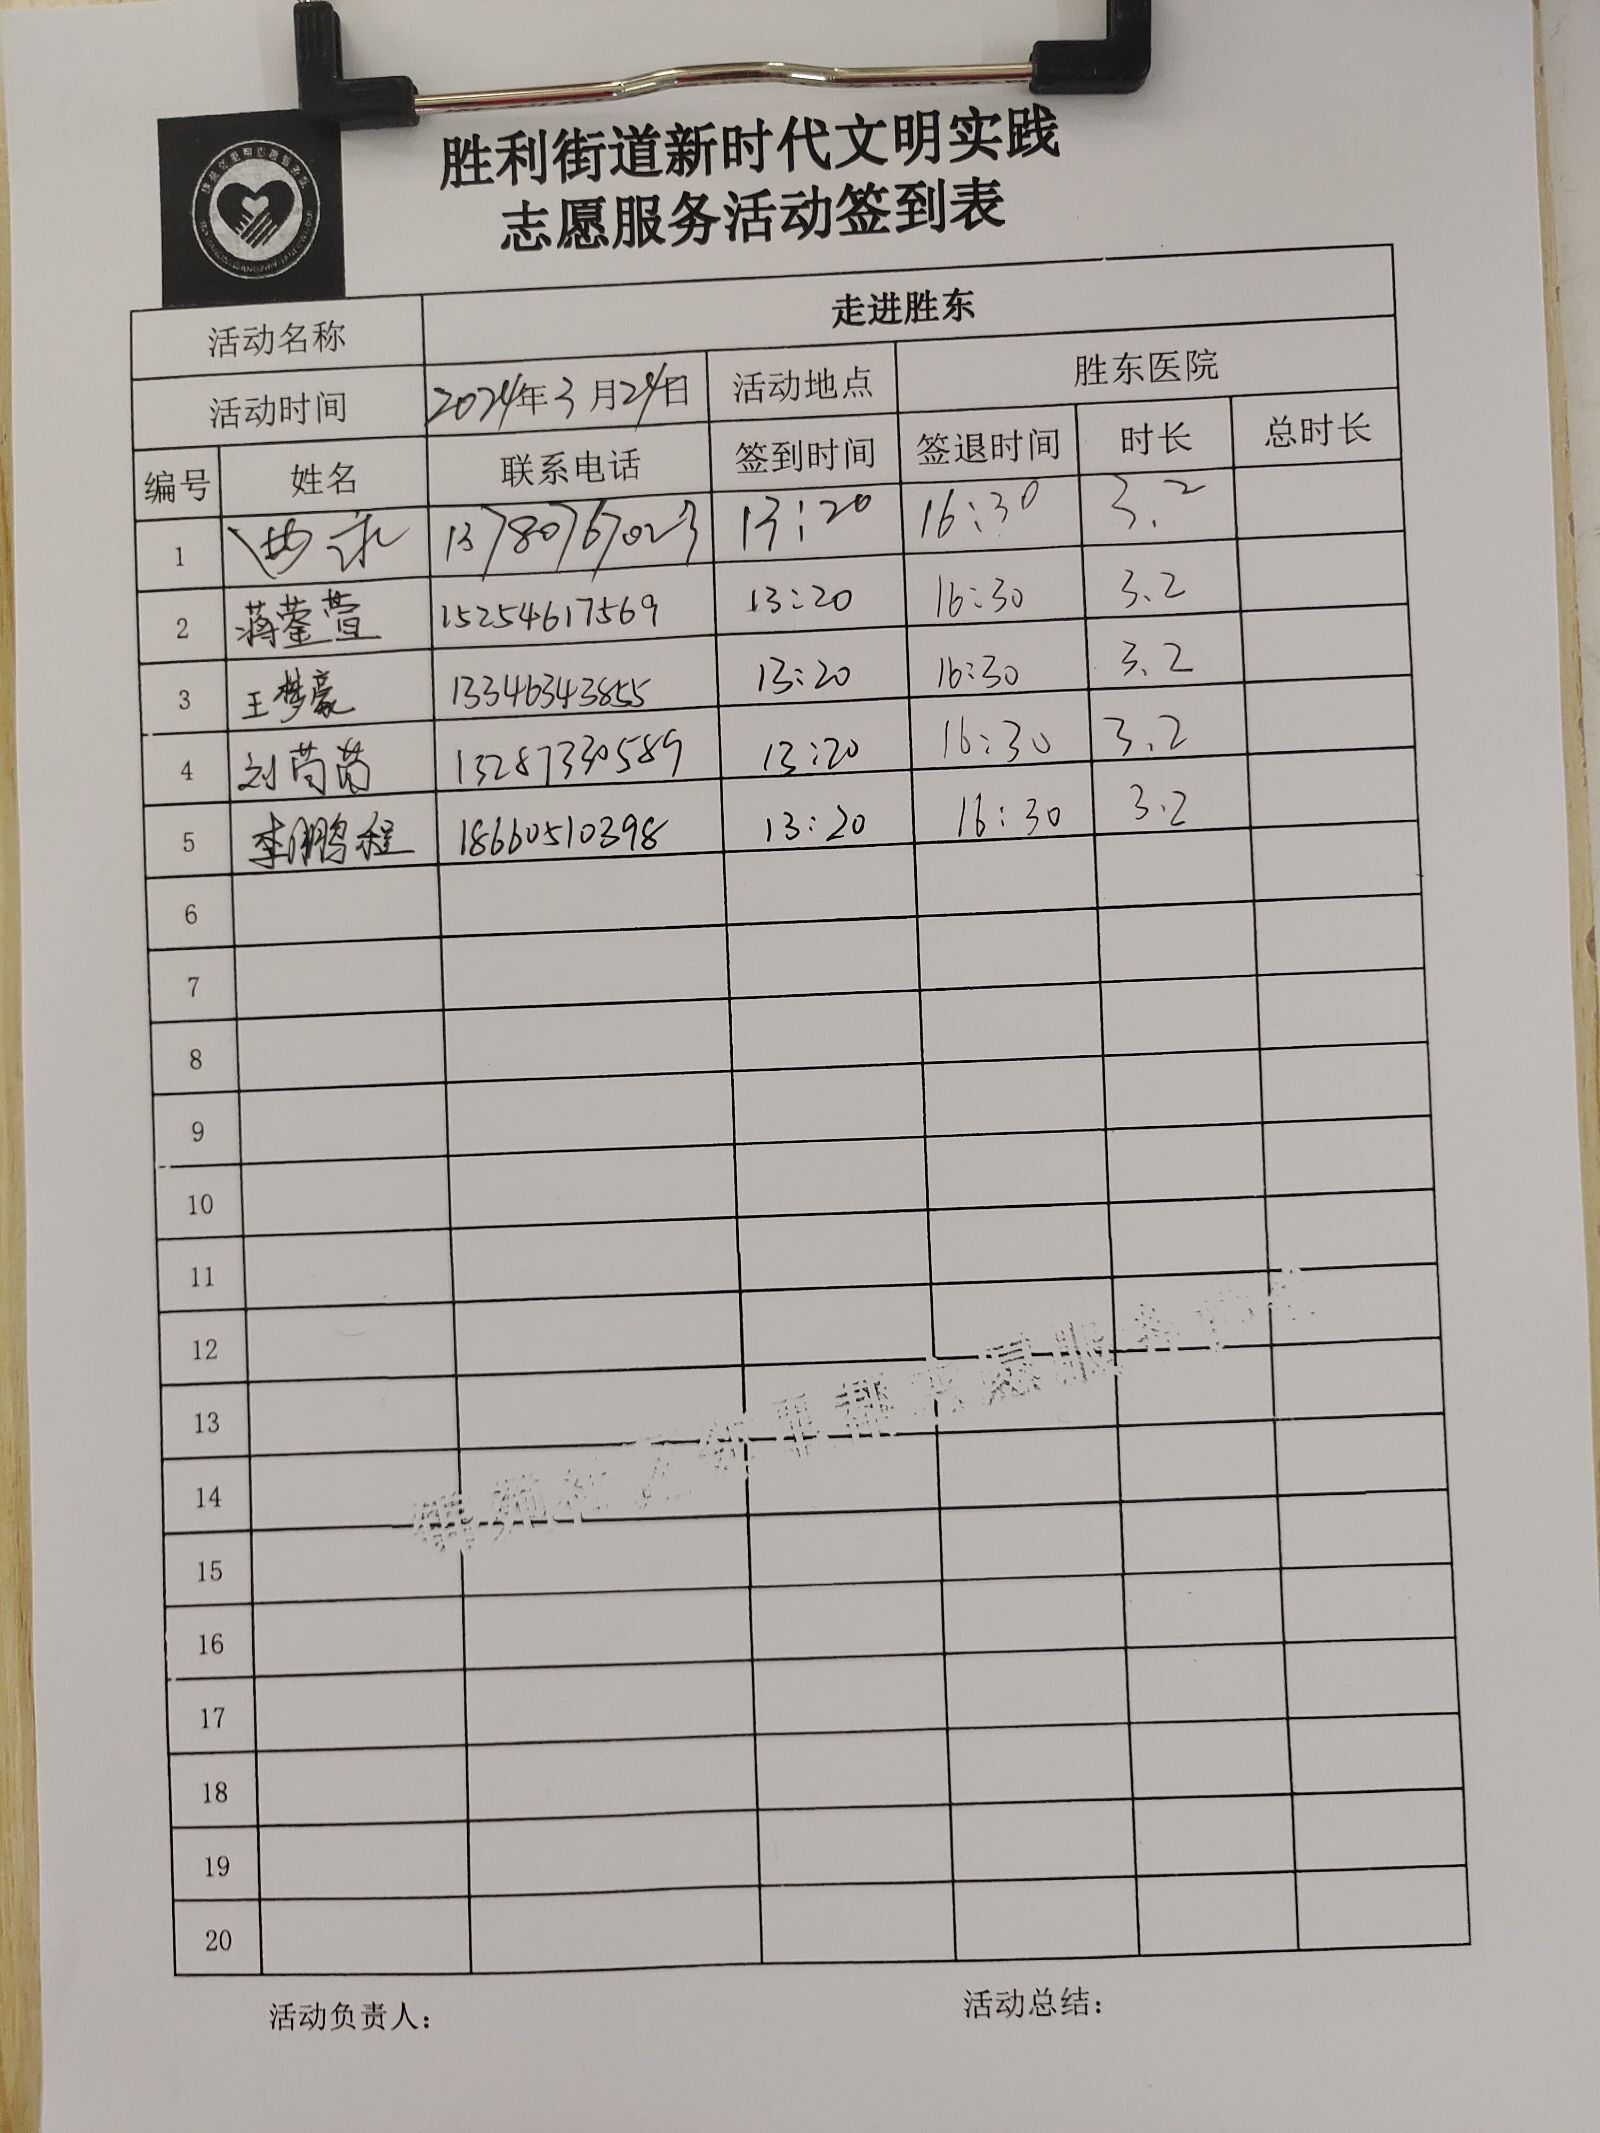 胜利街道新时代文明实践
志愿服务活动签到表
活动名称 走进胜东
活动时间 2024年3月24日 活动地点 胜东医院
编号 姓名 联系电话 签到时间 签退时间 时长 总时长
1 13780767023 13:20 16:30 3.2
2 蒋蓥萱 15254617569 13:20 16:30 3.2
3 王梦豪 13346343855 13:20 16:30 3.2
4 刘芮芮 13287330589 13:20 16:30 3.2
5 李鹏程 18660510398 13:20 16:30 3.2
6
7
8
9
10
11
12
13
14
15
16
17
18
19
20
活动负责人: 活动总结: